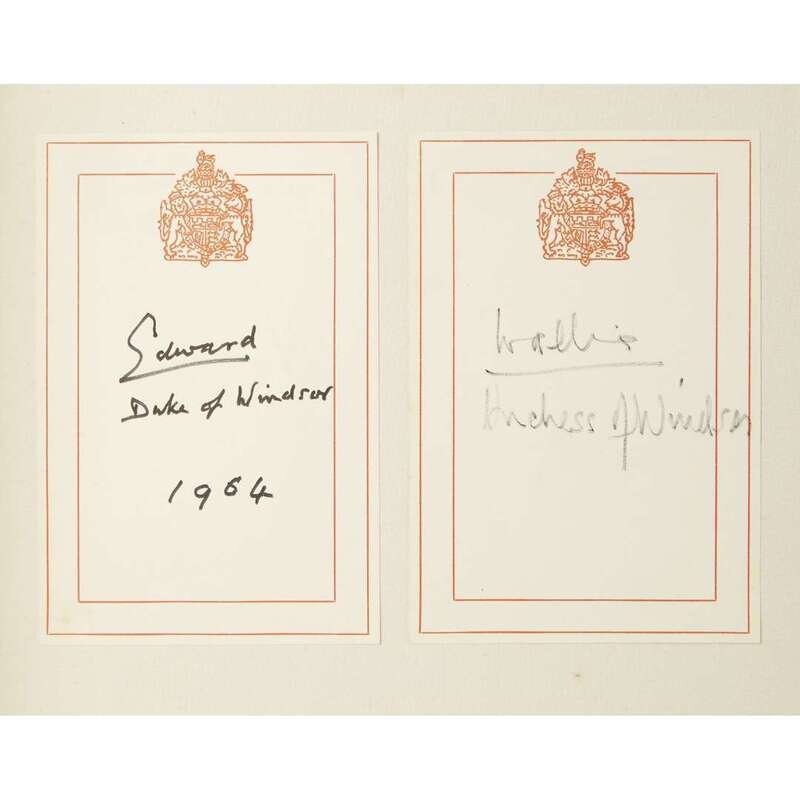 Edward
Duke of Windsor
1964
Wallis
Duchess of Windsor